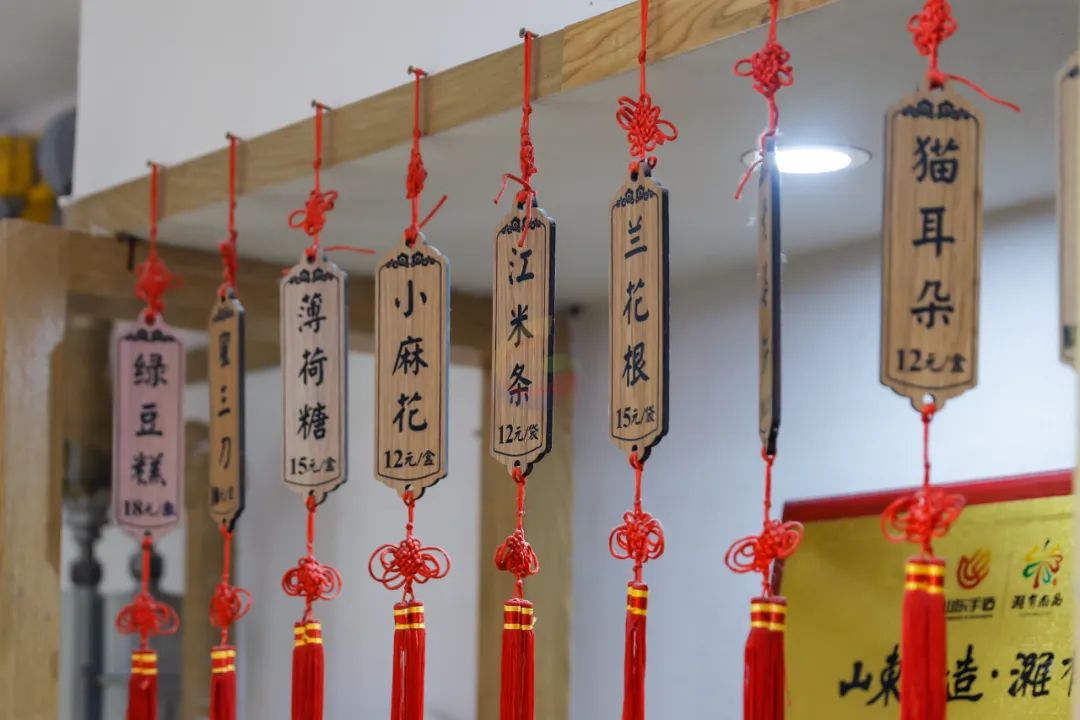 绿豆糕
18元/盒
蜜三刀
薄荷糖
15元/盒
小麻花
12元/盒
江米条
12元/袋
兰花根
15元/袋
猫耳朵
12元/盒
山东手造
潍有尚品
山東 造·潍